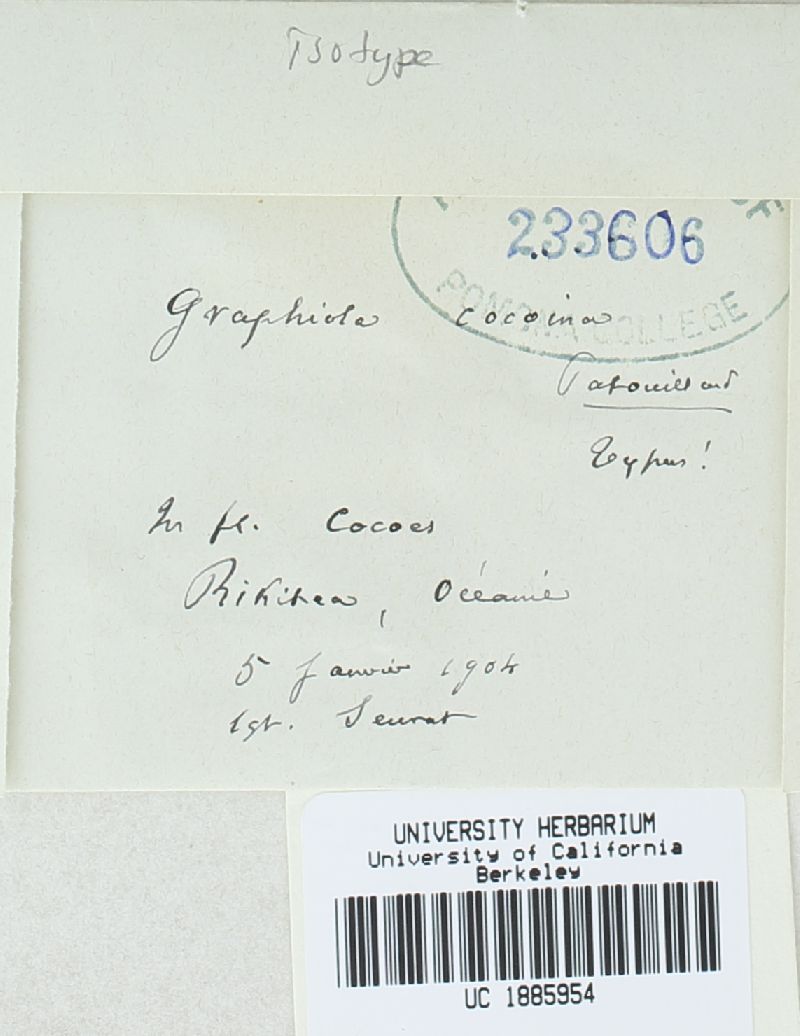 Isotype
233606
POMONA COLLEGE
Graphiola cocoina
Patouillard
Typus!
In fl. Cocoes
Rikitea, Océanie
5 Janvier 1904
lgt. Seurat
UNIVERSITY HERBARIUM
University of California
Berkeley
UC 1885954